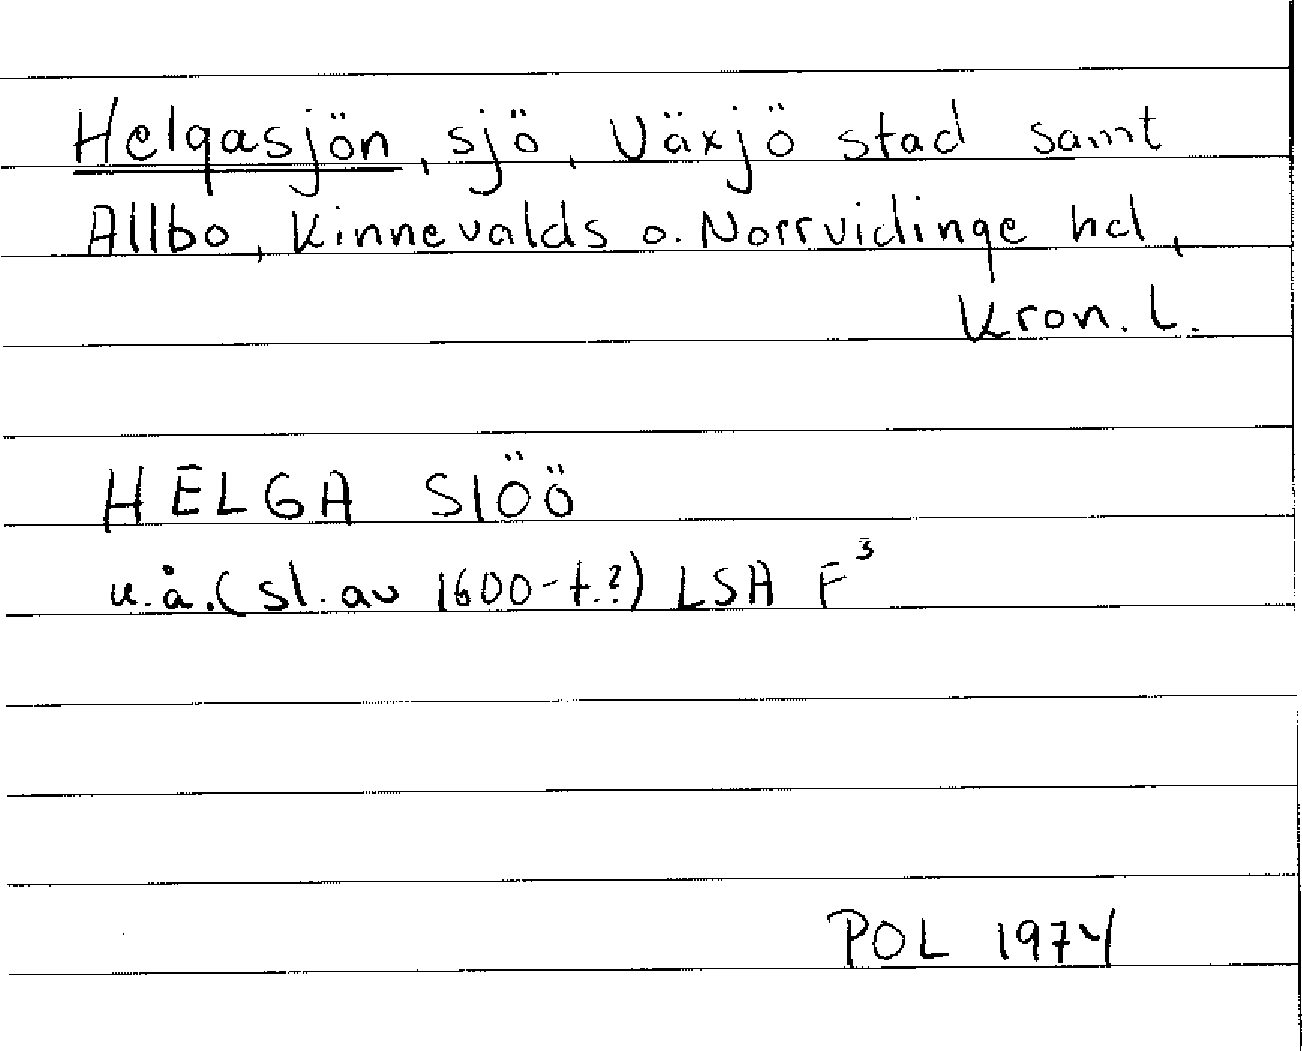 Helgasjön, sjö, Växjö stad samt
Allbo, Kinnevalds o. Norrvidinge hd,
Kron. L.
HELGA SIÖÖ
u.å. (sl. av 1600-t.?) LSA F³
POL 1974